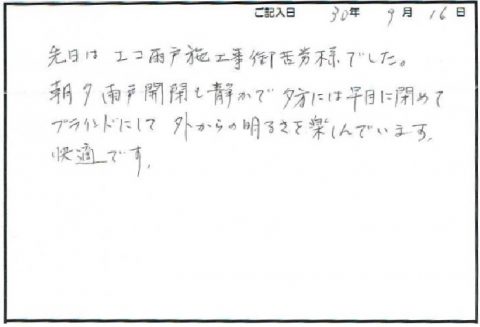 ご記入日 30年 9月 16日
先日は エコ雨戸施工事御苦労様でした。
朝夕 雨戸開閉も静かで 夕方には早目に閉めて
ブラインドにして 外からの明るさを楽しんでいます。
快適です。